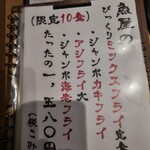 魚屋の
びっくりミックスフライ定食
(限定10食)
・ジャンボカキフライ
・アジフライ大
・ジャンボ海老フライ
たったの一、五八〇円
(税こみ)